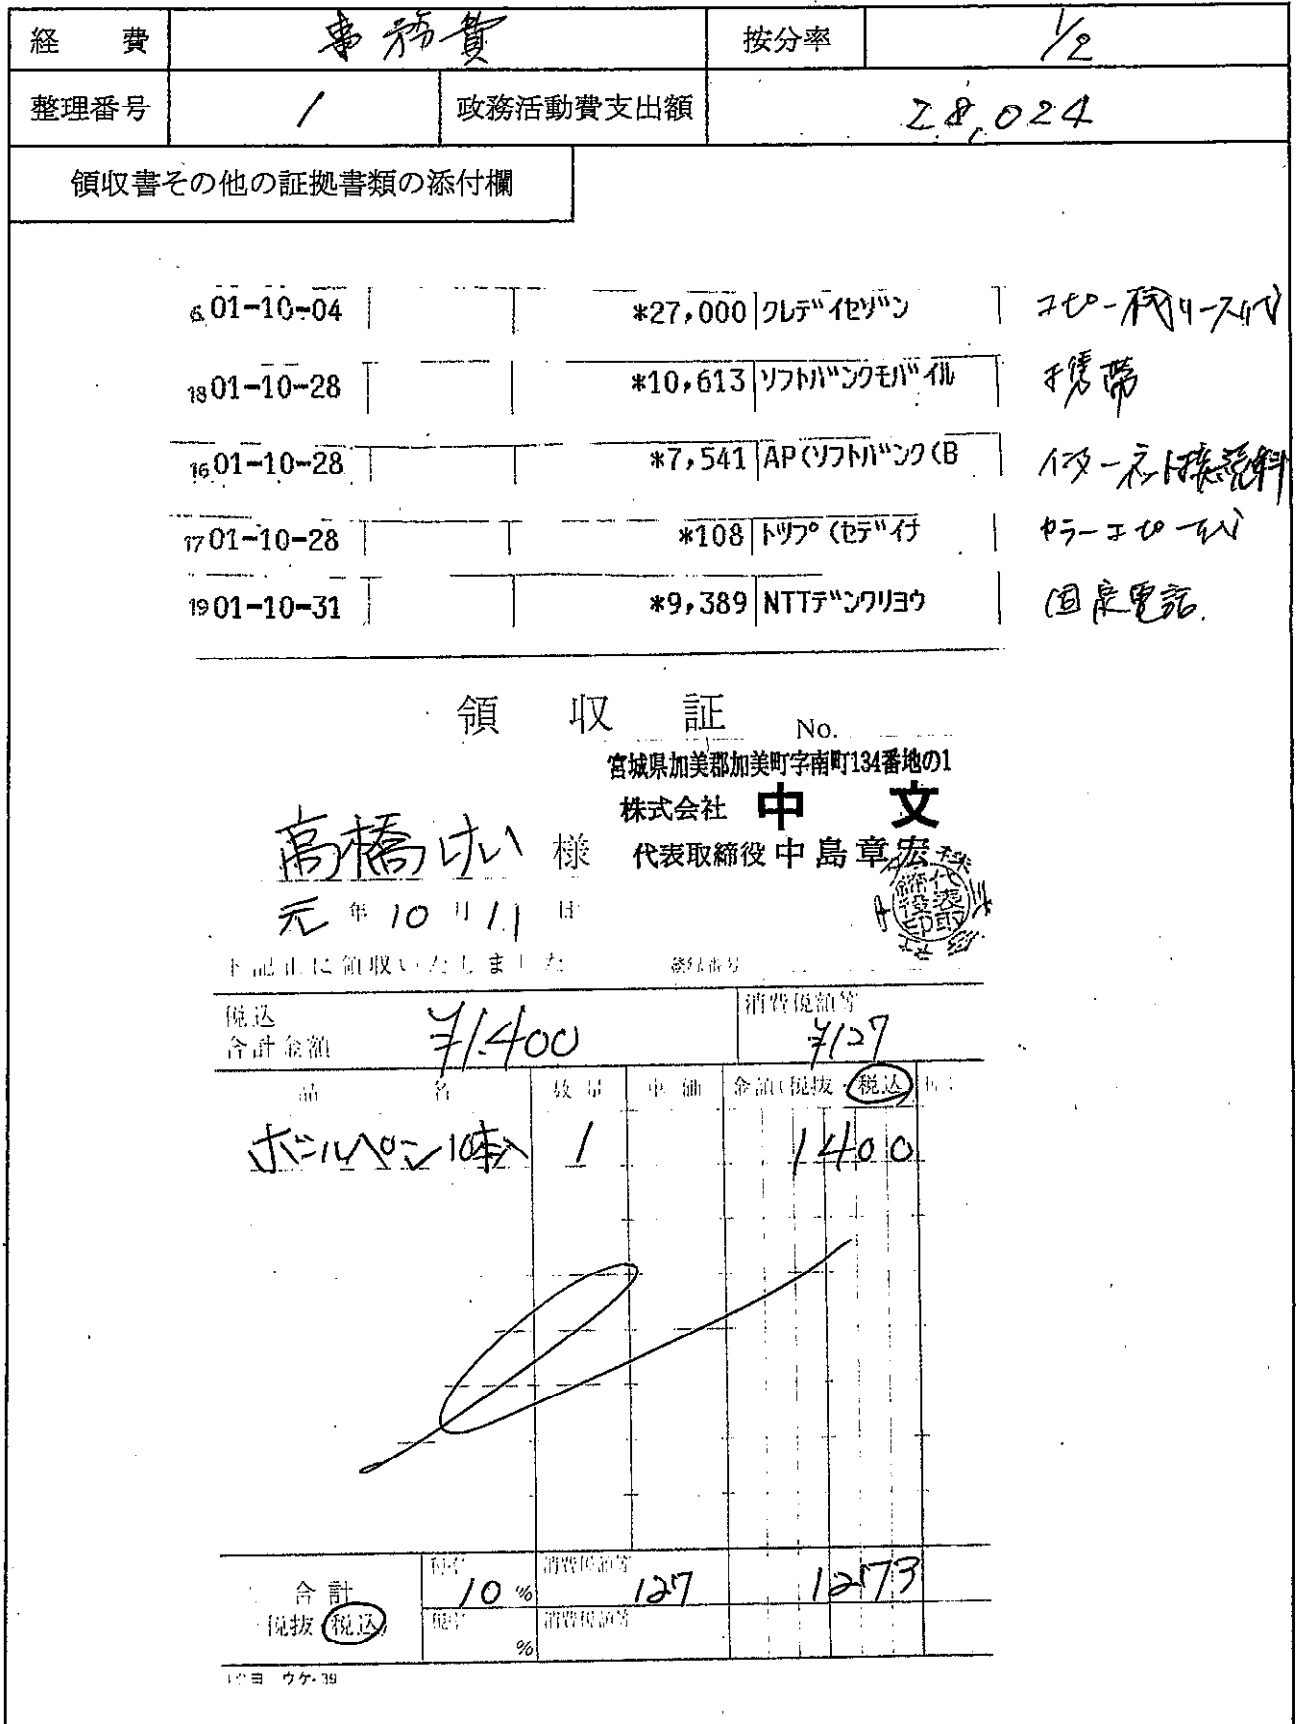 経 費 事務費 按分率 1/2
整理番号 1 政務活動費支出額 28,024
領収書その他の証拠書類の添付欄
6 01-10-04 *27,000 クレデイセゾン コピー機リース代
18 01-10-28 *10,613 ソフトバンクモバイル 携帯
16 01-10-28 *7,541 AP(ソフトバンク(B インターネット接続料
17 01-10-28 *108 トツプ(セデイナ カラーコピー代
19 01-10-31 *9,389 NTTデンワリヨウ 固定電話
領 収 証 No.
宮城県加美郡加美町字南町134番地の1
株式会社 中 文
高橋けい 様 代表取締役 中島章宏
元 年 10 月 11 日
下記正に領収いたしました 登録番号
税込 合計金額 ¥1,400 消費税額等 ¥127
品 名 数量 単価 金額(税抜・税込)
ボールペン10本入 1 1400
合計 10% 消費税額等 127 1273
税抜・税込 % 消費税額等
コクヨ ウケ-39